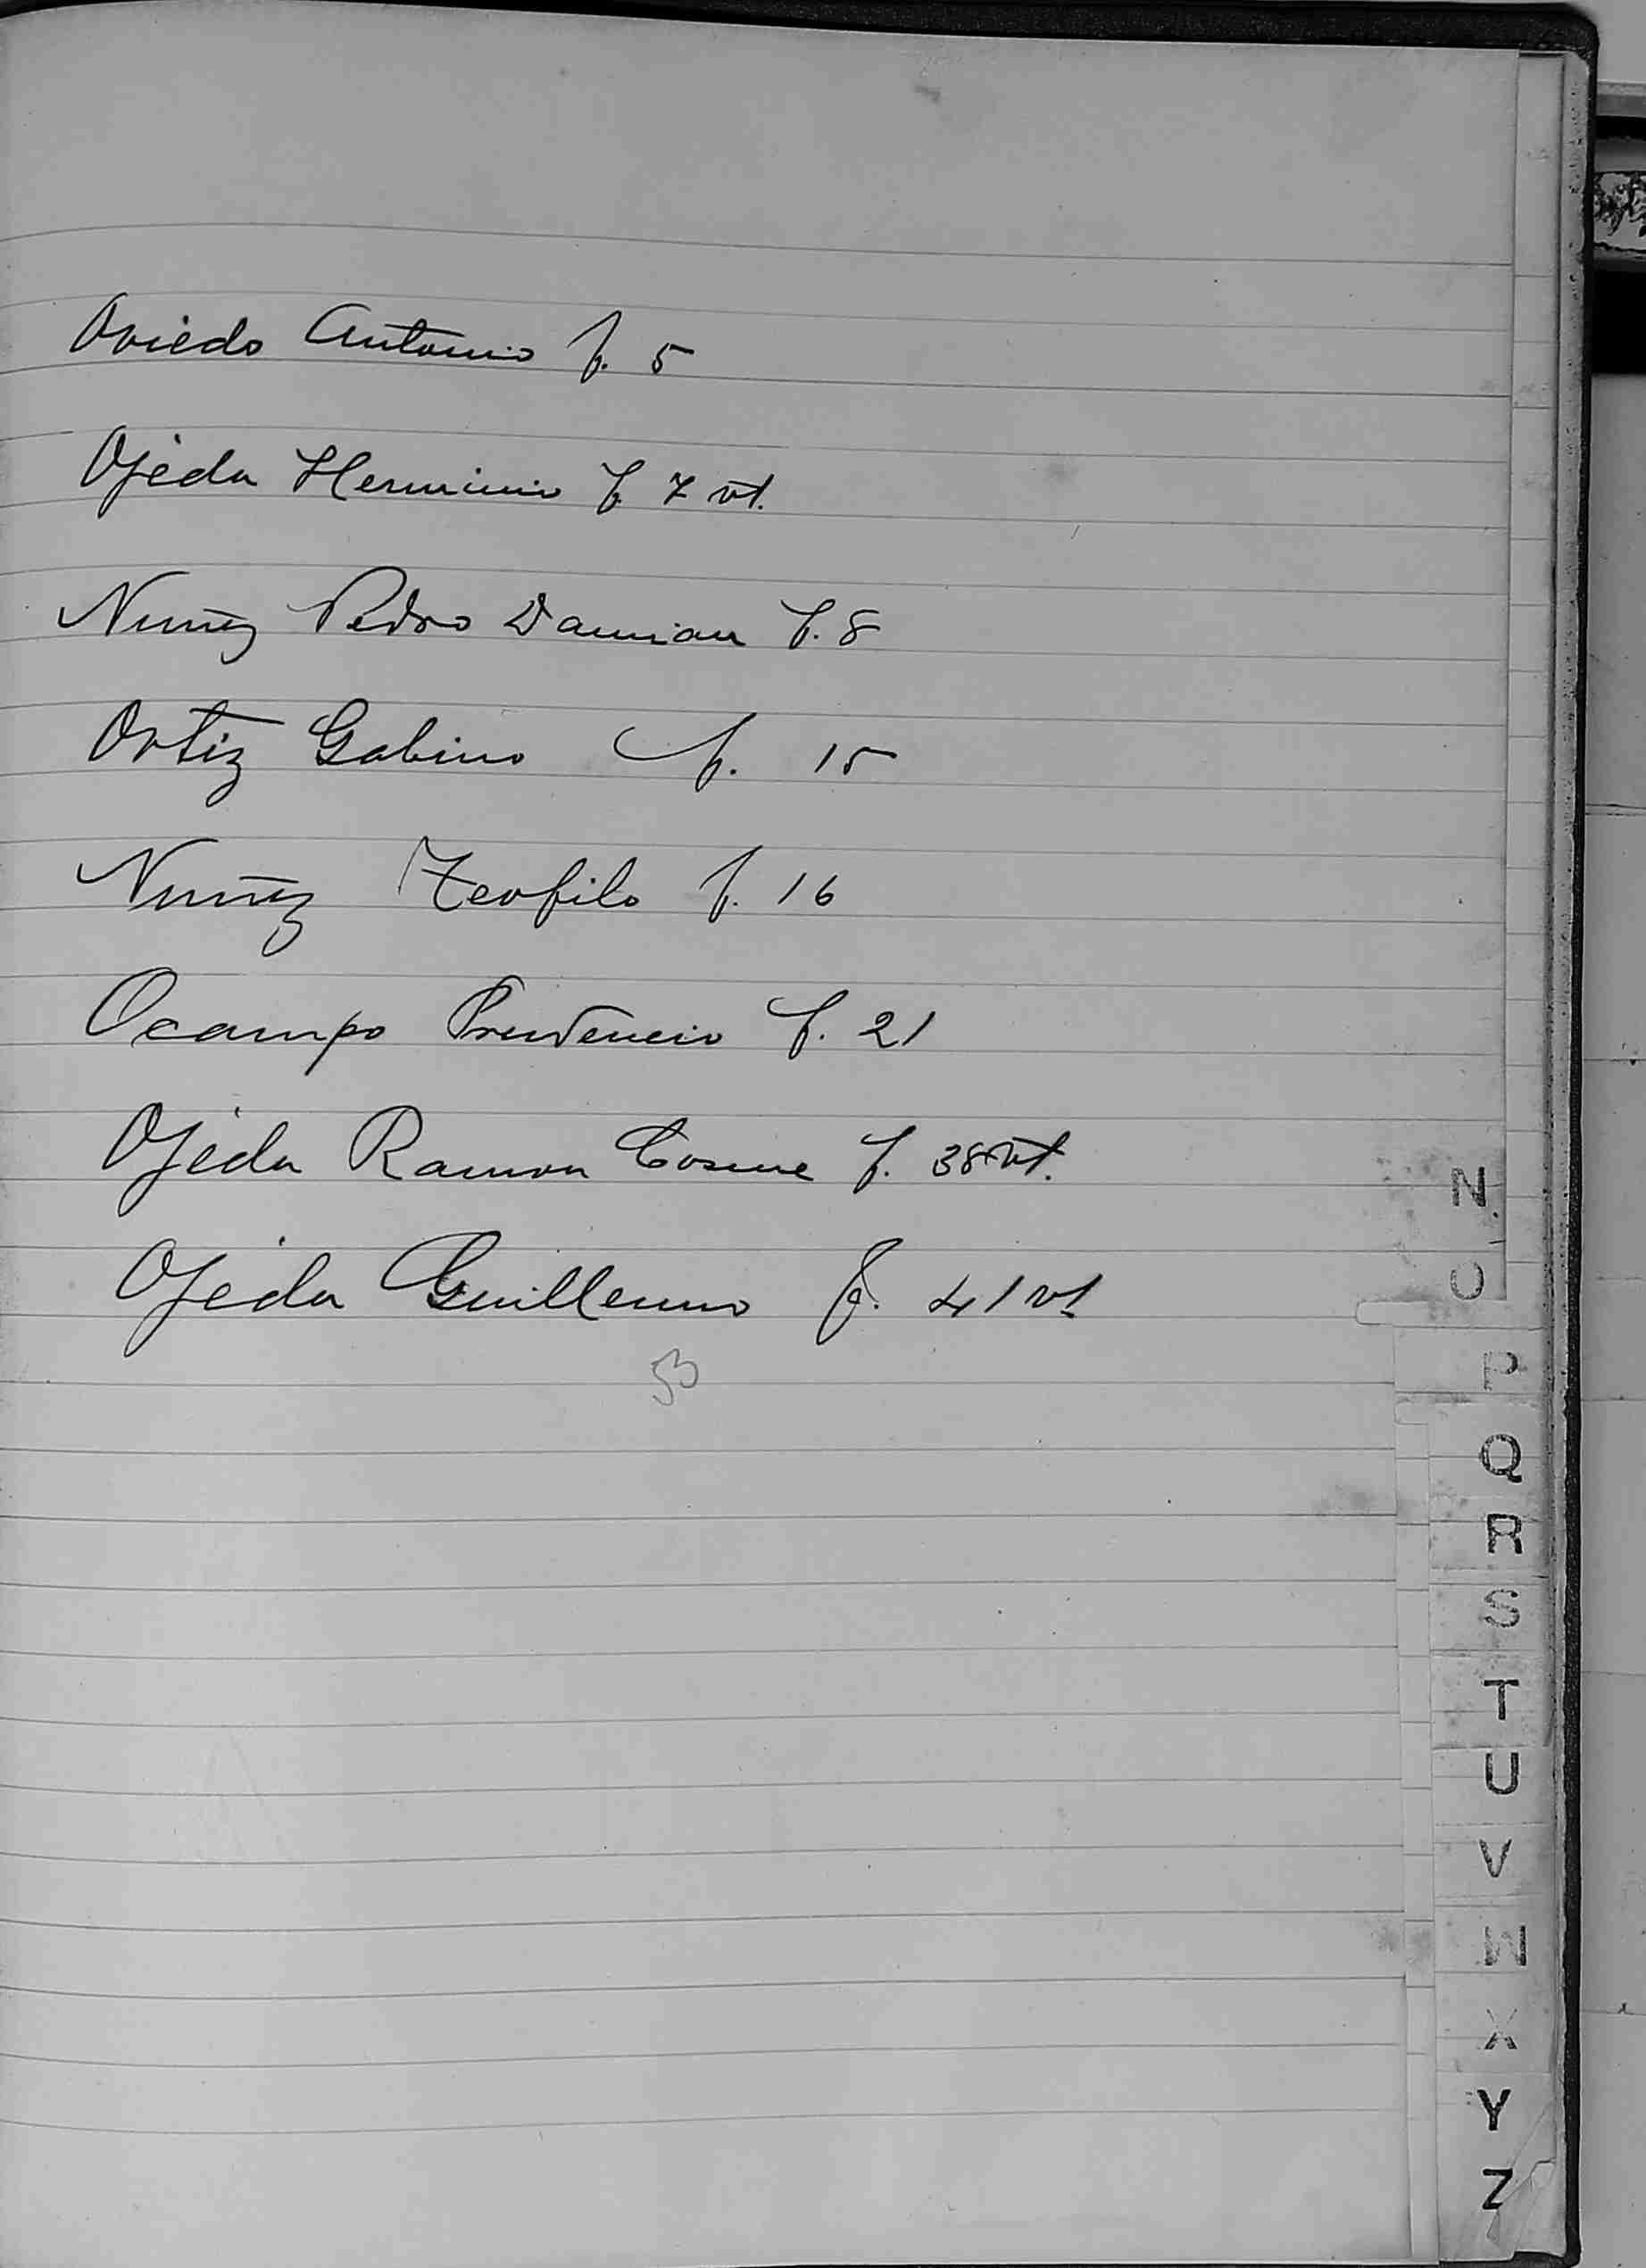 Oviedo Antonio f. 5
Ojeda Herminio f. 7 vt.
Nuñez Pedro Damian f. 8
Ortiz Gabino f. 15
Nuñez Teofilo f. 16
Ocampo Prudencio f. 21
Ojeda Ramon Cosme f. 38 vt.
Ojeda Guillermo f. 41 vt
53
N
O
P
Q
R
S
T
U
V
W
X
Y
Z